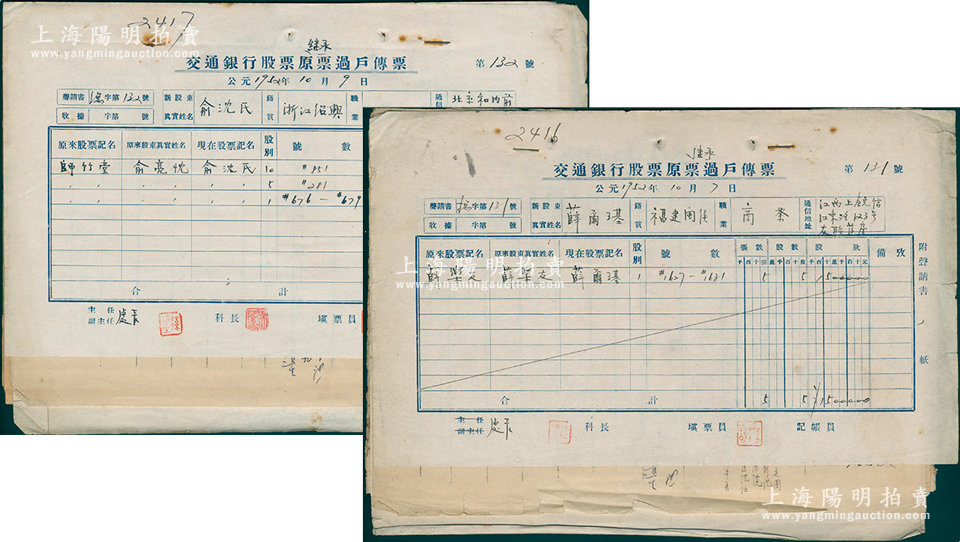 上海陽明拍賣
www.yangmingauction.com
2417
継承
交通銀行股票原票過戶傳票
第 132 號
公元 1952 年 10 月 9 日
聲請書 字第 132 號
收據 字第 號
新股東真實姓名 俞沈民
籍貫 浙江紹興
職業
通信
北京和內前
原來股票記名 原來股東真實姓名 現在股票記名 股別 號 數
師竹堂 俞亮忱 俞沈民 10 #851
〃 〃 〃 5 #281
〃 〃 〃 1 #676 — #679
合 計
主任
副主任 處長
科長
填票員
2416
継承
交通銀行股票原票過戶傳票
第 131 號
公元 1952 年 10 月 7 日
聲請書 字第 131 號
收據 字第 號
新股東真實姓名 薛爾璂
籍貫 福建閩侯
職業 商業
通信地址
江西上饒信
江東路123号
原來股票記名 原來股東真實姓名 現在股票記名 股別 號 數 張數 股數 股款 備攷
千百十張 萬千百十股 千百十萬千百十元
薛 薛 薛爾璂 1 #1627 — #1631 5 5 1500000
合 計 5 5 1500000
附聲請書 紙
主任
副主任 處長
科長
填票員
記帳員
上海陽明拍賣
www.yangmingauction.com
上海陽明拍賣
www.yangmingauction.com